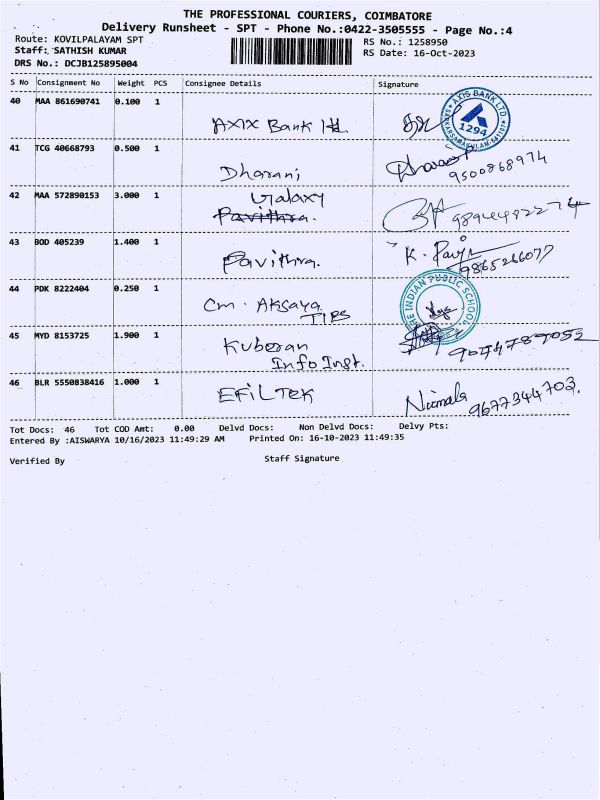 THE PROFESSIONAL COURIERS, COIMBATORE
Delivery Runsheet - SPT - Phone No.:0422-3505555 - Page No.:4
Route: KOVILPALAYAM SPT
RS No.: 1258950
Staff: SATHISH KUMAR
RS Date: 16-Oct-2023
DRS No.: DCJB125895004
S No Consignment No Weight PCS Consignee Details Signature
40 MAA 861690741 0.100 1 AXIX Bank ltd.
AXIS BANK LTD. 1294
41 TCG 40668793 0.500 1 Dharani
9500868974
42 MAA 572890153 3.000 1 Galaxy
Pavithra.
43 BOD 405239 1.400 1 Pavithra.
K.
9865266077
44 PDK 8222404 0.250 1 Cm. Aksaya
TIPS
THE INDIAN PUBLIC SCHOOL
45 MYD 8153725 1.900 1 Kuberan
Info Inst.
46 BLR 5550838416 1.000 1 EFiLTEK
Nirmala
9677344703.
Tot Docs: 46 Tot COD Amt: 0.00 Delvd Docs: Non Delvd Docs: Delvy Pts:
Entered By :AISWARYA 10/16/2023 11:49:29 AM Printed On: 16-10-2023 11:49:35
Verified By Staff Signature